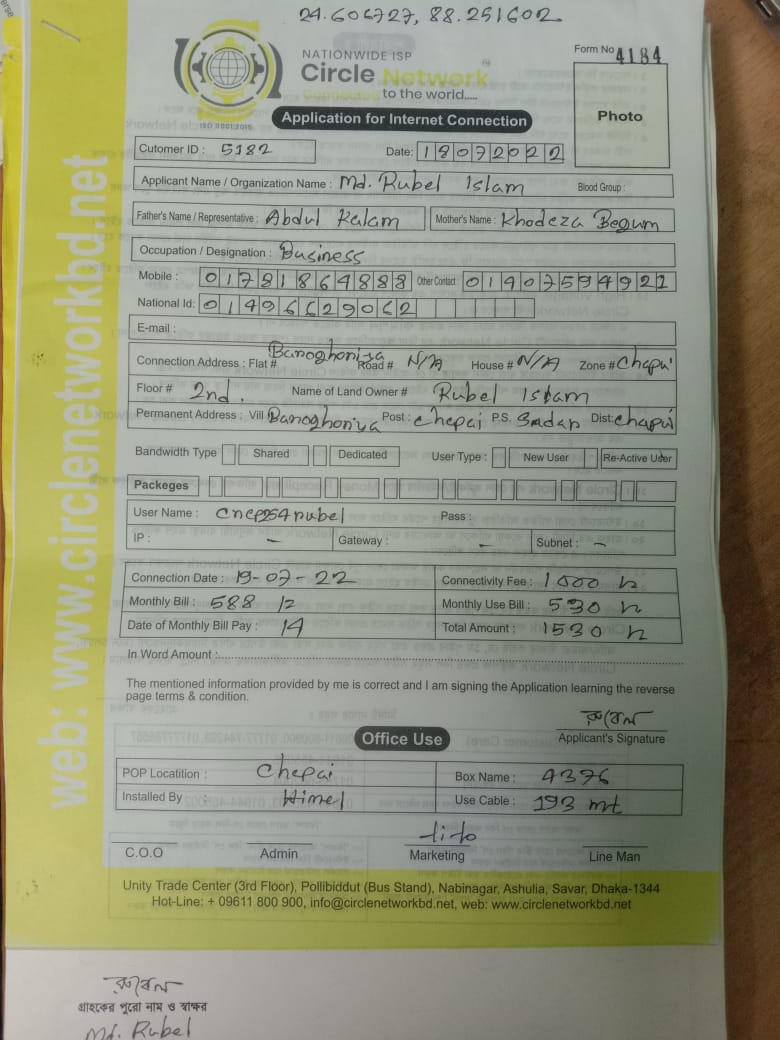 24.606727, 88.251602
NATIONWIDE ISP
Circle Network
Connected to the world.....
ISO 9001:2015
Form No 4184
Photo
Application for Internet Connection
Cutomer ID : 5182
Date: 18072022
Applicant Name / Organization Name : Md. Rubel Islam Blood Group :
Father's Name / Representative : Abdul Kalam Mother's Name : Khodeza Begum
Occupation / Designation : Business
Mobile : 01791864888 Other Contact : 01907594922
National Id: 01496629062
E-mail :
Connection Address : Flat # Banoghoniya Road # N/A House # N/A Zone # Chapai
Floor # 2nd. Name of Land Owner # Rubel Islam
Permanent Address : Vill Banoghoniya Post : Chepai P.S. Sadar Dist: Chapai
Bandwidth Type Shared Dedicated User Type : New User Re-Active User
Packeges
User Name : cnep254rubel Pass :
IP : - Gateway : - Subnet : -
Connection Date : 19-07-22 Connectivity Fee : 1000
Monthly Bill : 588 Monthly Use Bill : 530
Date of Monthly Bill Pay : 14 Total Amount : 1530
In Word Amount :
The mentioned information provided by me is correct and I am signing the Application learning the reverse
page terms & condition.
রুবেল
Applicant's Signature
Office Use
POP Locatition : Chepai Box Name : 4376
Installed By : Himel Use Cable : 193 mt
C.O.O Admin Marketing Line Man
Unity Trade Center (3rd Floor), Pollibiddut (Bus Stand), Nabinagar, Ashulia, Savar, Dhaka-1344
Hot-Line: + 09611 800 900, info@circlenetworkbd.net, web: www.circlenetworkbd.net
web: www.circlenetworkbd.net
রুবেল
গ্রাহকের পুরো নাম ও স্বাক্ষর
Md. Rubel